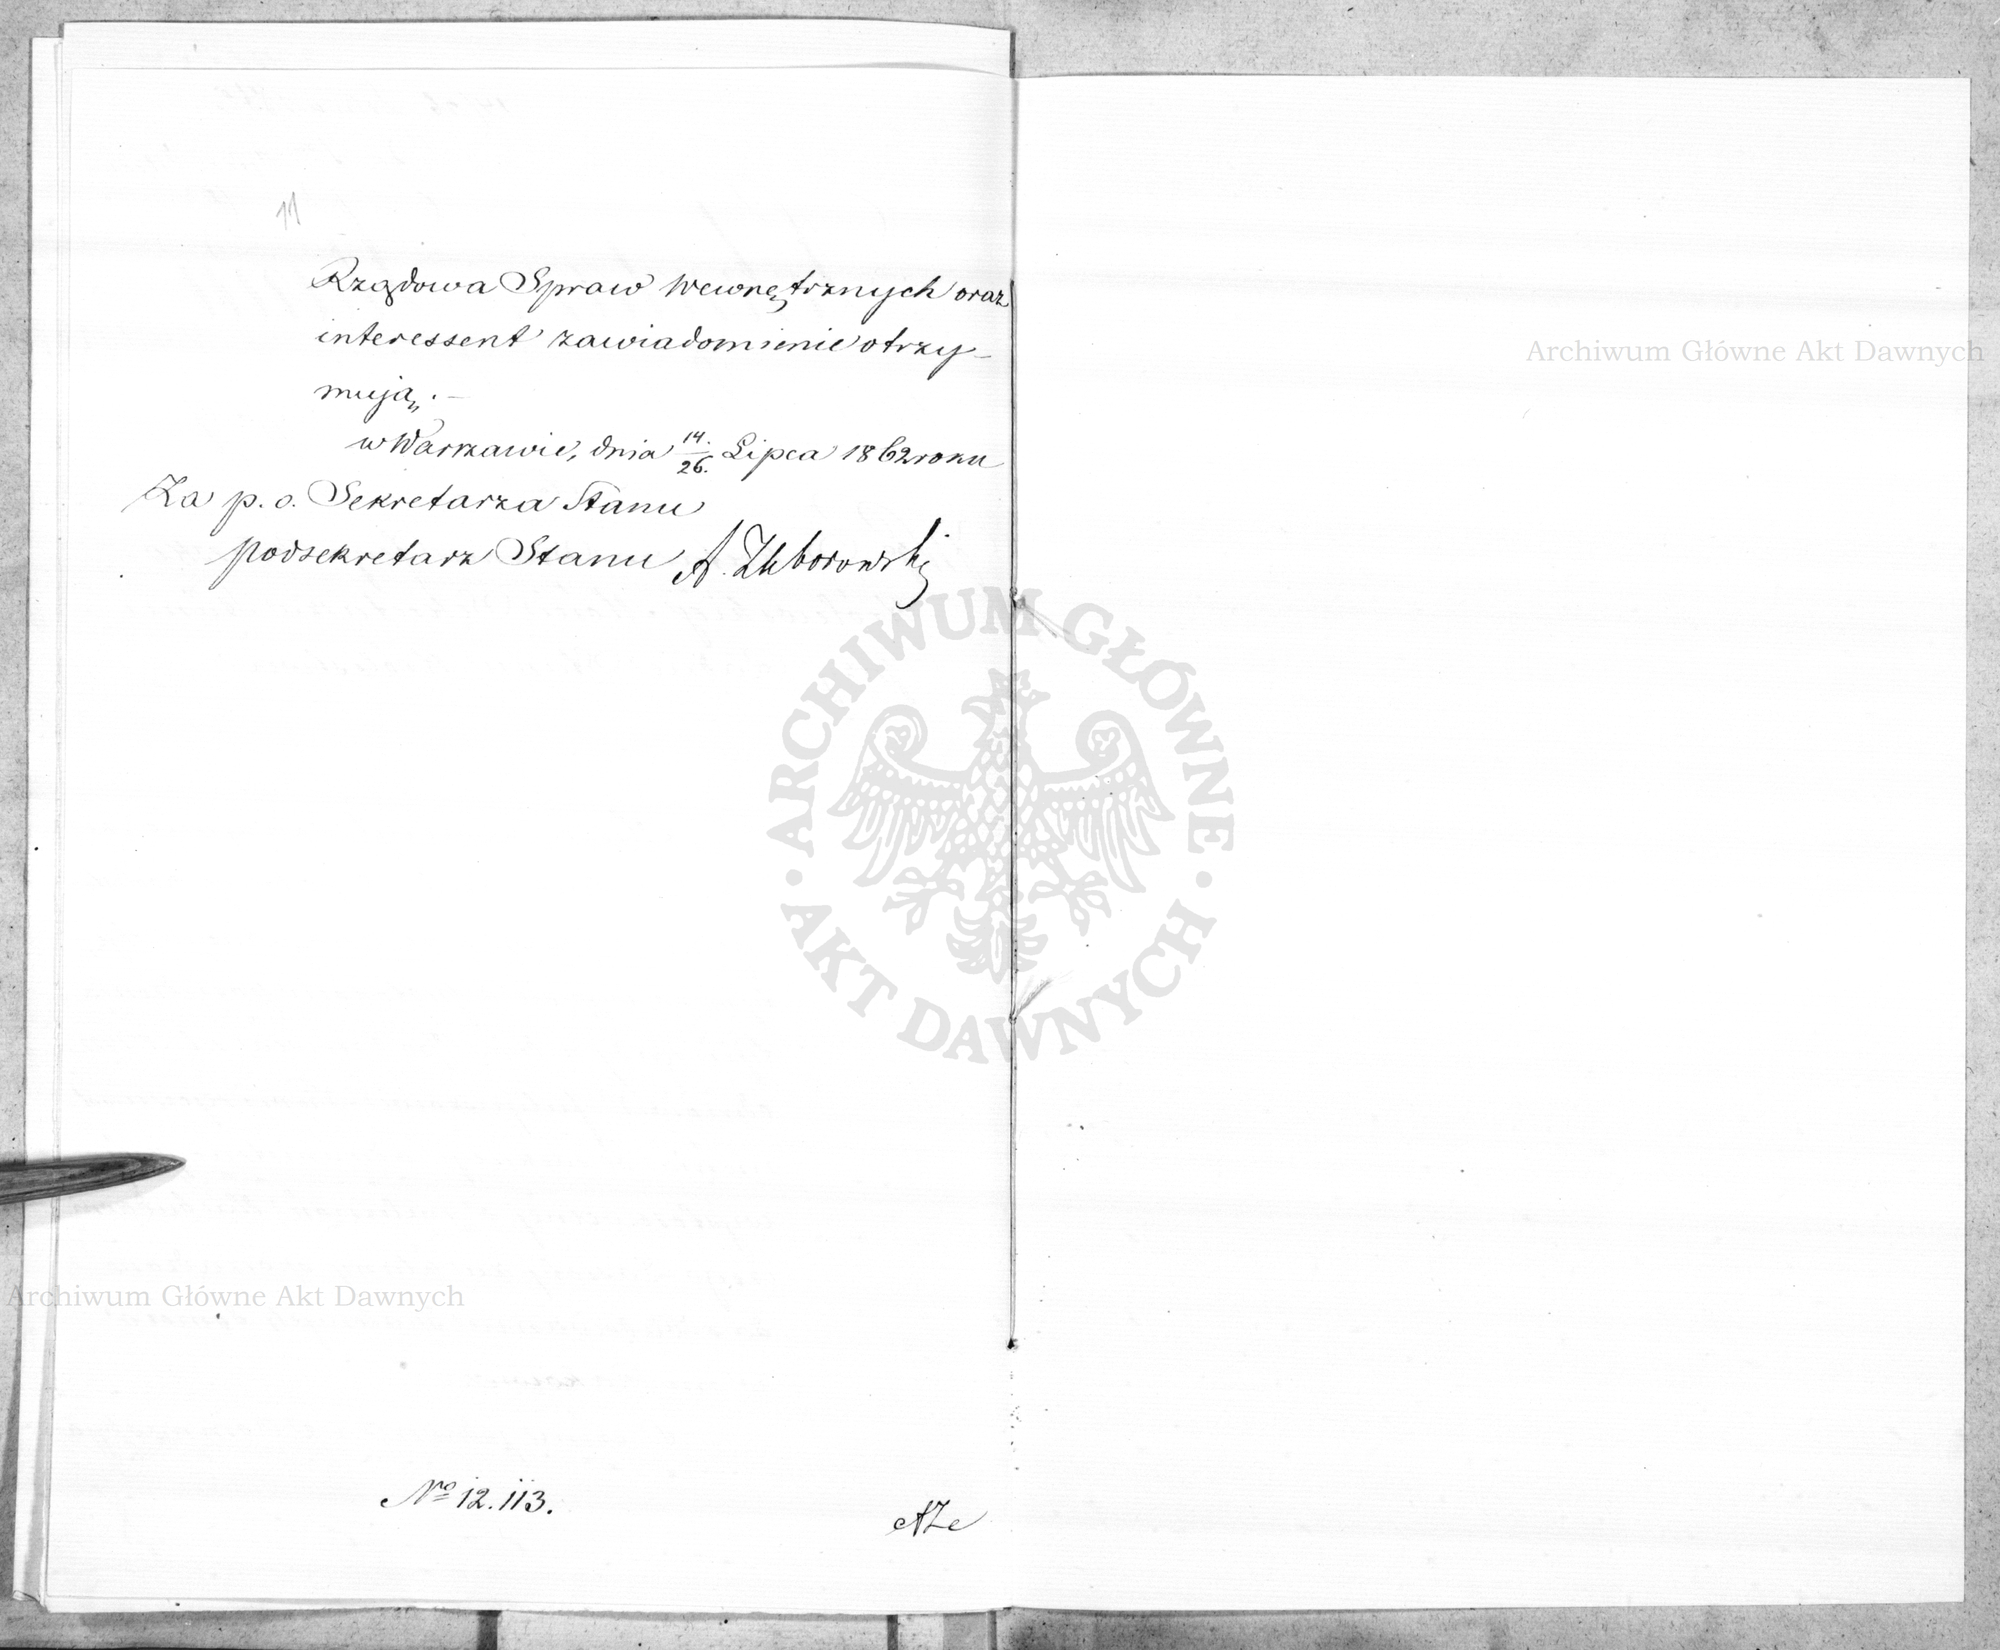 11
Rządowa Spraw Wewnętrznych oraz
interessent zawiadomienie otrzy-
mują.-
w Warszawie, dnia 14./26. Lipca 1862 roku
Za p. o. Sekretarza Stanu
podsekretarz Stanu A. Zaborowski
No 12.113.
Archiwum Główne Akt Dawnych
Archiwum Główne Akt Dawnych
ARCHIWUM GŁÓWNE
AKT DAWNYCH